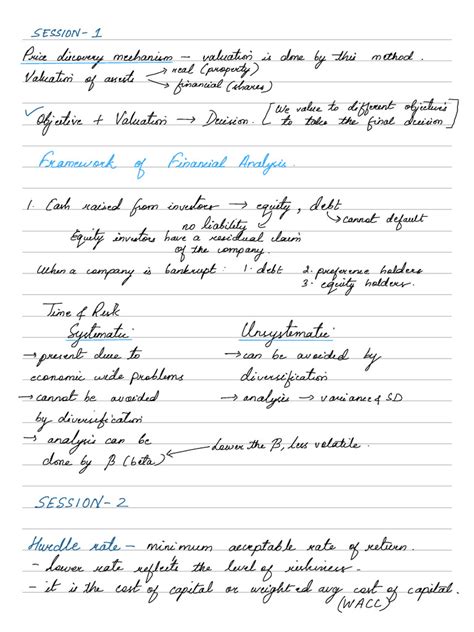 SESSION - 1
Price discovery mechanism - valuation is done by this method.
Valuation of assets → real (property)
→ financial (shares)
✓ Objective + Valuation → Decision. [We value to different objectives to take the final decision]
Framework of Financial Analysis.
1. Cash raised from investors → equity, debt
no liability ↙ ↘ cannot default
Equity investors have a residual claim
of the company.
When a company is bankrupt : 1. debt 2. preference holders
3. equity holders.
Time & Risk
Systematic: Unsystematic:
→ present due to → can be avoided by
economic wide problems diversification
→ cannot be avoided → analysis → variance & SD
by diversification
→ analysis can be Lower the β, less volatile.
done by β (beta)
SESSION - 2
Hurdle rate - minimum acceptable rate of return.
- Lower rate reflects the level of riskiness.
- it is the cost of capital or weighted avg cost of capital.
(WACC)